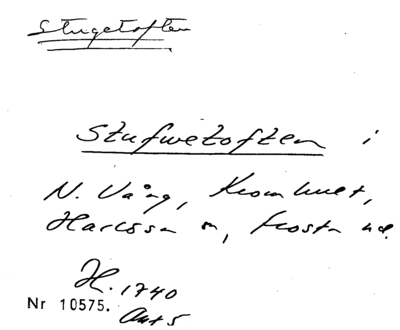 Stugetoften
Stufwetoften i
N. Vång, Kromhuset,
Harlösa sn, Frosta hd.
H. 1740
Nr 10575. Akt 5